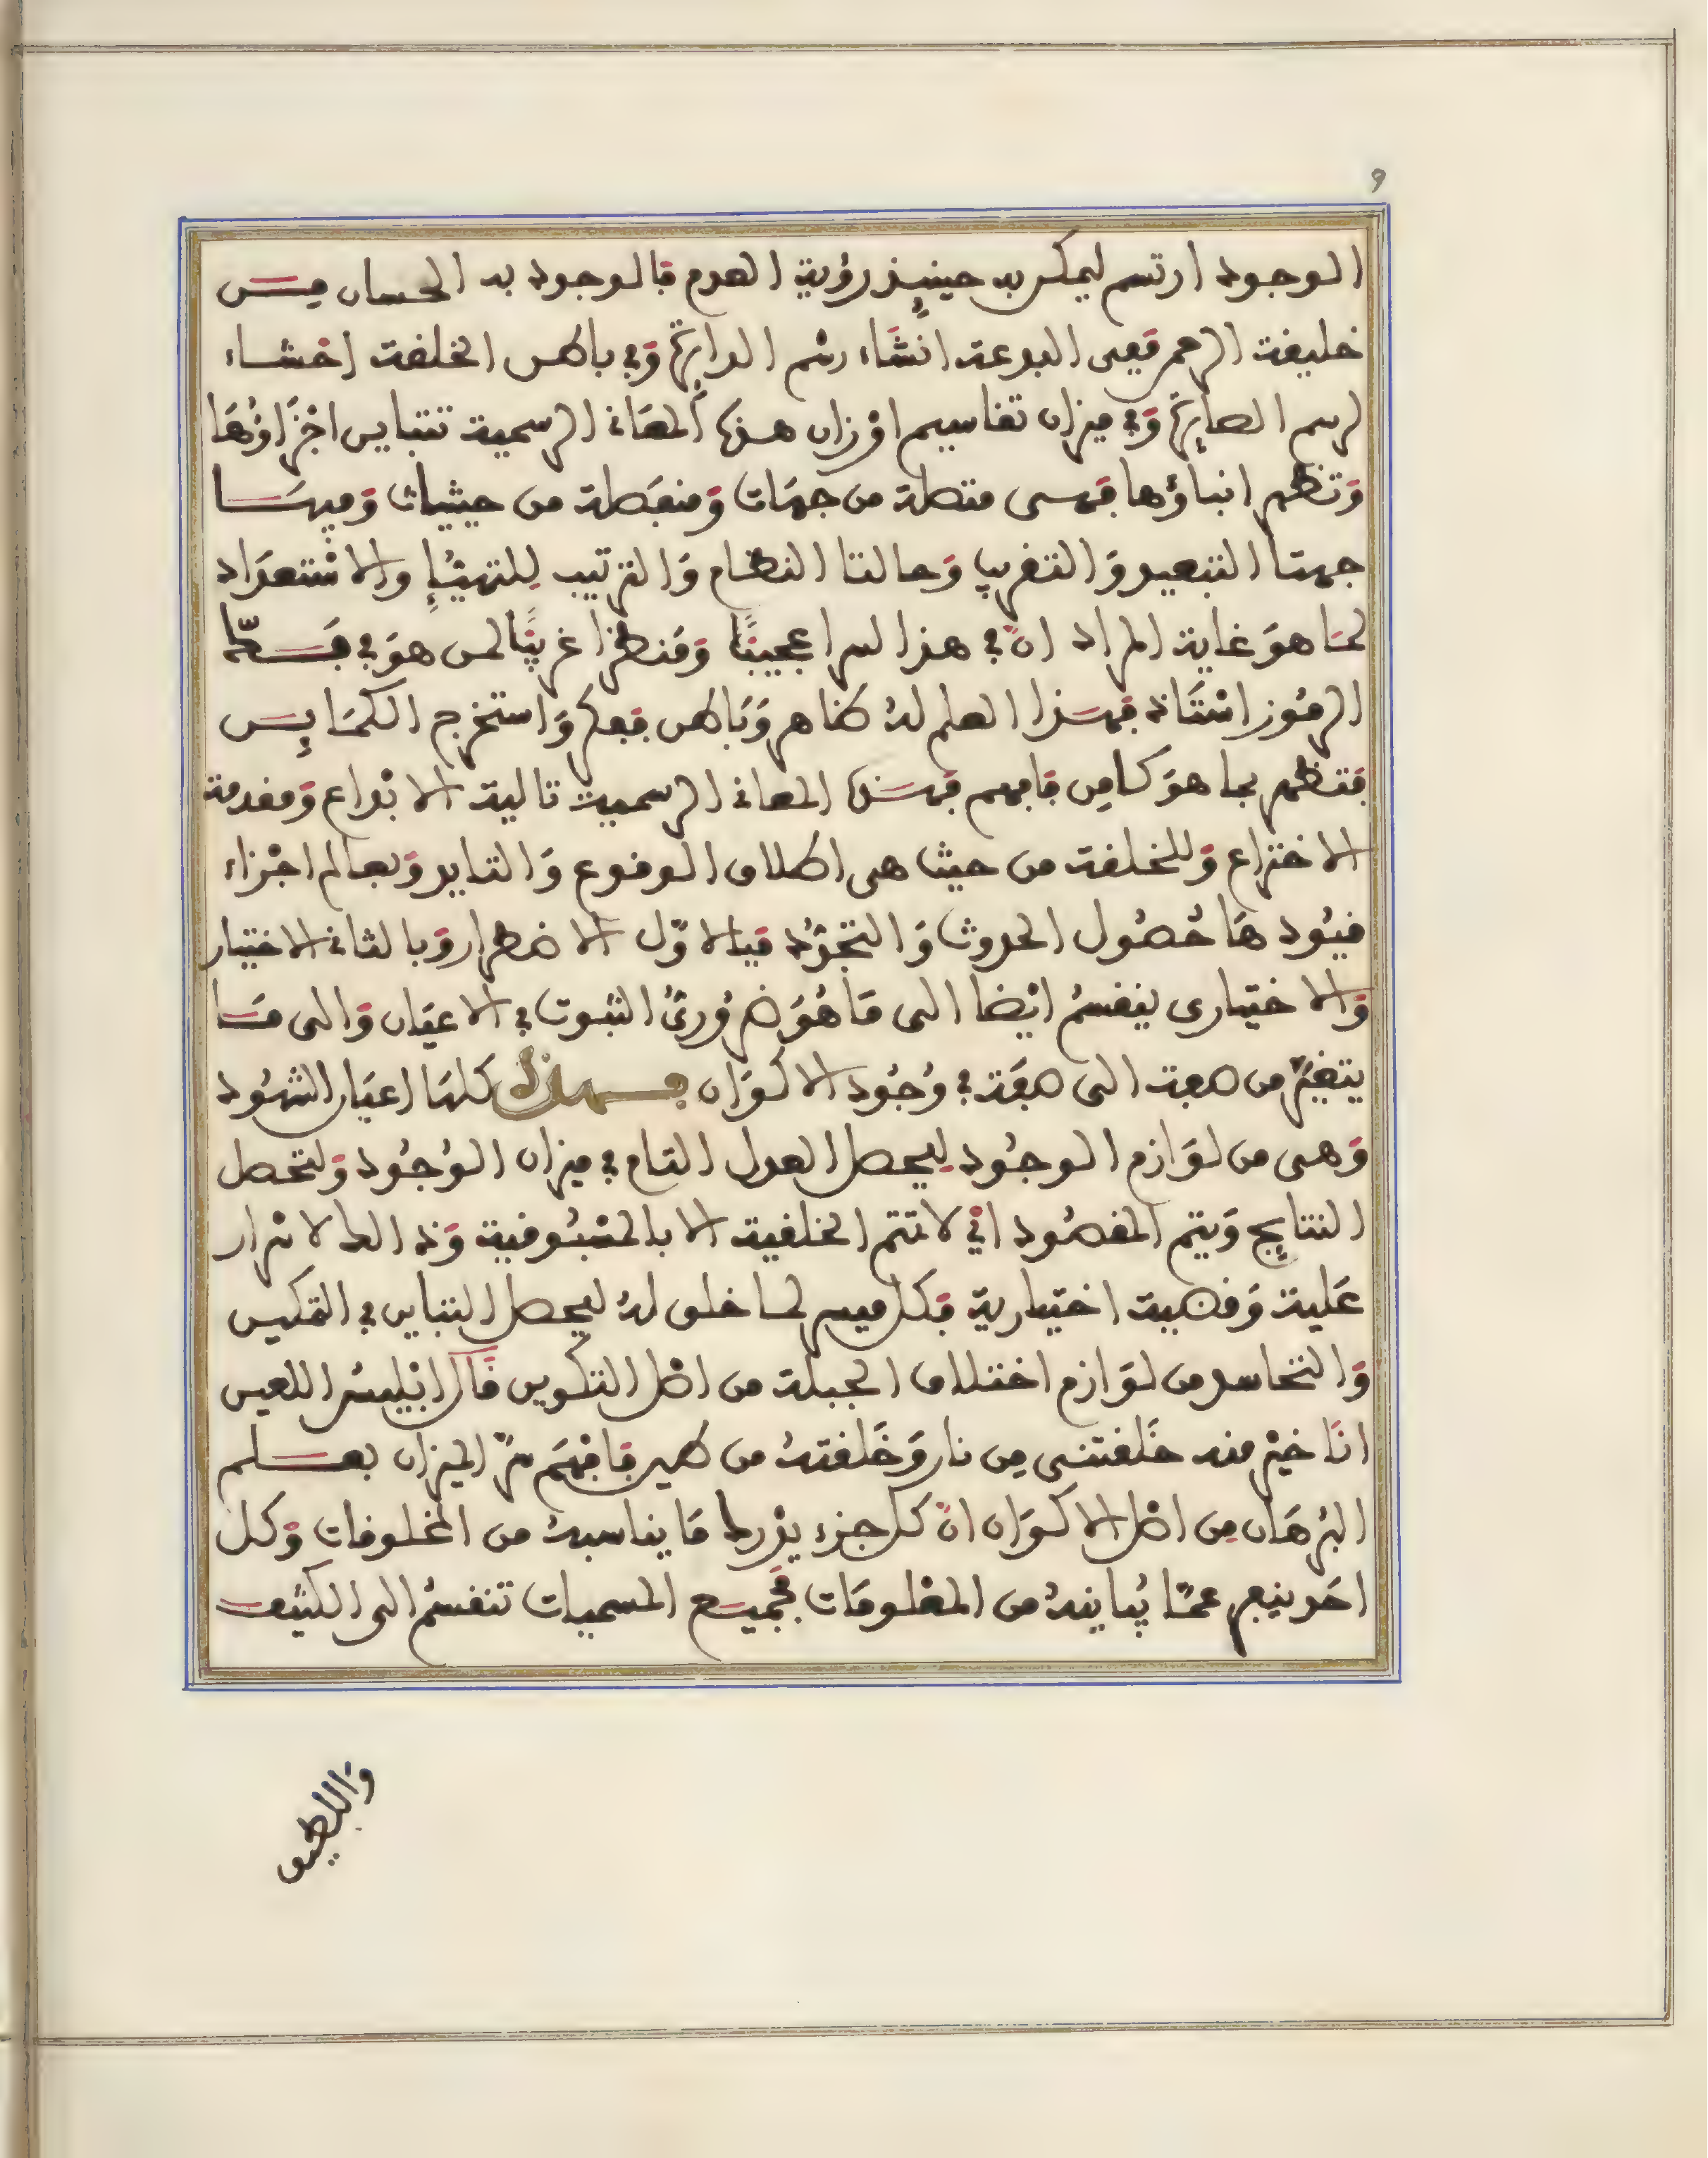 9
الوجود ارتسم ليمكن به حينئذ رؤية العدم فالوجود به الحسان من
خليفة الرحمن ففى البدعة انشاء رسم الدايرة وفى باطن الخلقة احشاء
لرسم الصايرة وفى ميزان تقاسيم اوزان هذه المعانى الرسمية تتباين اجزاؤها
وتظهر انباؤها فهى متصلة من جهات ومنفصلة من حيثيات وفيها
جهتا التبعيد والتقريب وحالتا النظام والترتيب للتهيئ والاستعداد
لما هو غاية المراد ان فى هذا لسرا عجيبا ومنظرا غريبا لمن هو فى فك
الرموز استاذ فهذا العلم له ظاهر وباطن ففكر واستخرج الكمائن
فتظهر بما هو كامن فافهم فهذه المعانى الرسمية تالية الابداع ومقدمة
الاختراع وللخلقة من حيث هى اطلاق الوقوع والتاييد وبعالم اجزاء
قيودها حصول الحدوث والتجدد فبالاول الاضطرار وبالثانى الاختيار
والاختيارى ينقسم ايضا الى ما هو ضرورى الثبوت فى الاعيان والى ما
يتغير من صفة الى صفة فى وجود الاكوان فهذه كلها اعيان الشهود
وهى من لوازم الوجود ليحصل العدل التام فى ميزان الوجود ولتحصل
النتايج ويتم المقصود اذ لا تتم الخلقية الا بالمسبوقية وذالك لاسرار
علية وقضية اختيارية فكل ميسر لما خلق له ليحصل التباين فى التمكين
والتحاسد من لوازم اختلاف الجبلة من اصل التكوين قال ابليس اللعين
انا خير منه خلقتنى من نار وخلقته من طين فافهم سر الميزان بعلم
البرهان من اصل الاكوان ان كل جزء يدرك ما يناسبه من المخلوقات وكل
احد ينفر عما يباينه من المعلومات فجميع المسميات تنقسم الى الكثيف
واللطيف